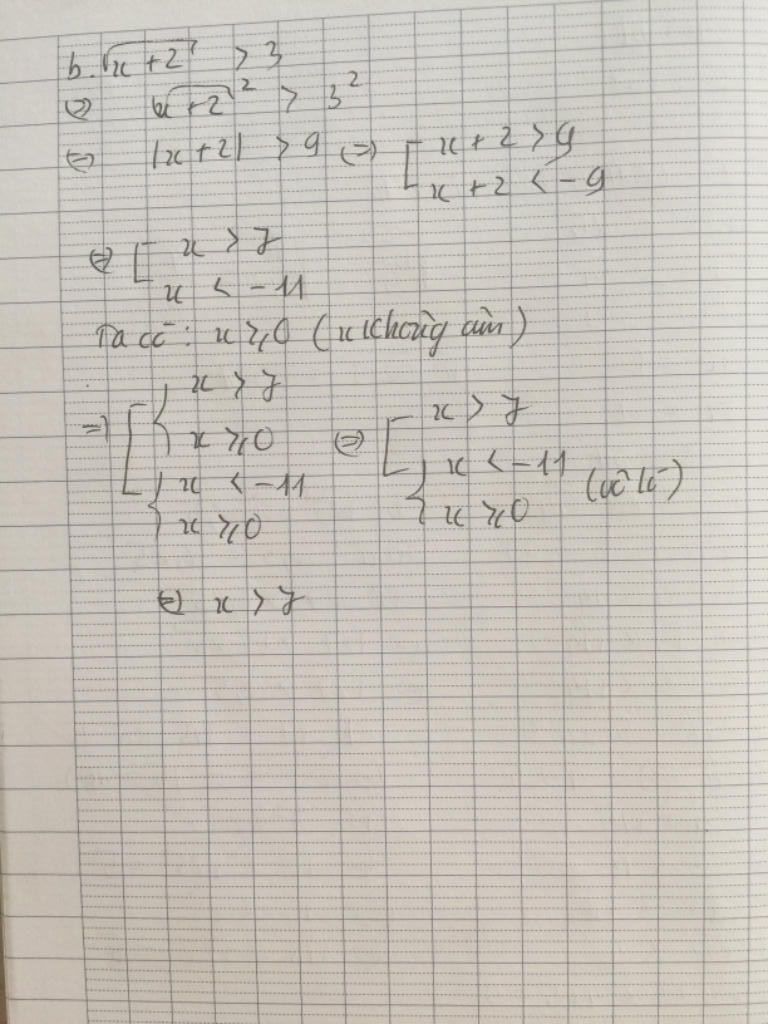 b. √(x+2) > 3
⇔ √(x+2)² > 3²
⇔ |x+2| > 9 ⇔ [ x+2 > 9
x+2 < -9
⇔ [ x > 7
x < -11
Ta có: x ≥ 0 (x không âm)
⇒ [ { x > 7
x ≥ 0 ⇔ [ x > 7
{ x < -11 { x < -11 (vô lí)
x ≥ 0 x ≥ 0
⇔ x > 7